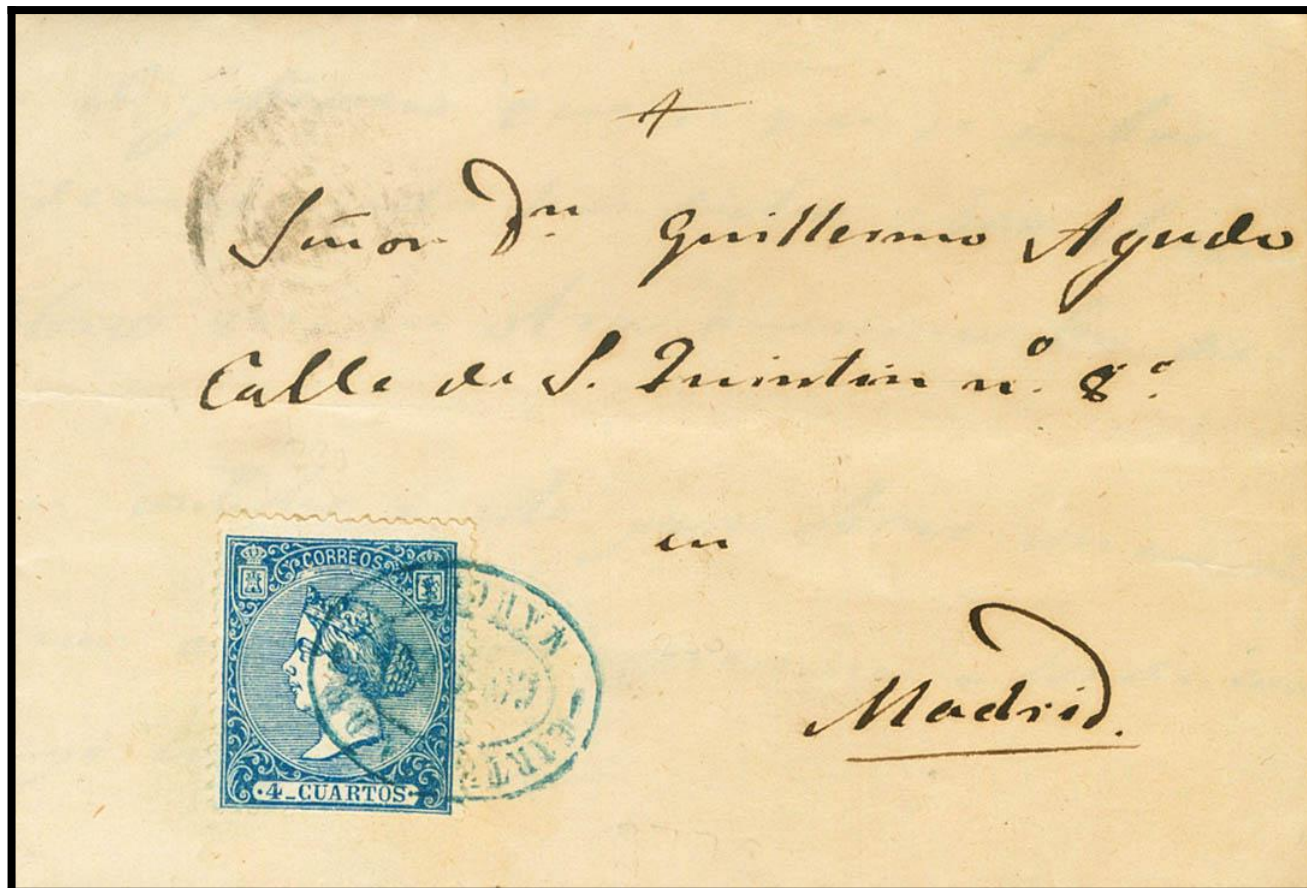 Señor Dn Guillermo Agudo
Calle de S. Quintin nº. 8º.
en
Madrid.
CORREOS
4 CUARTOS
CART